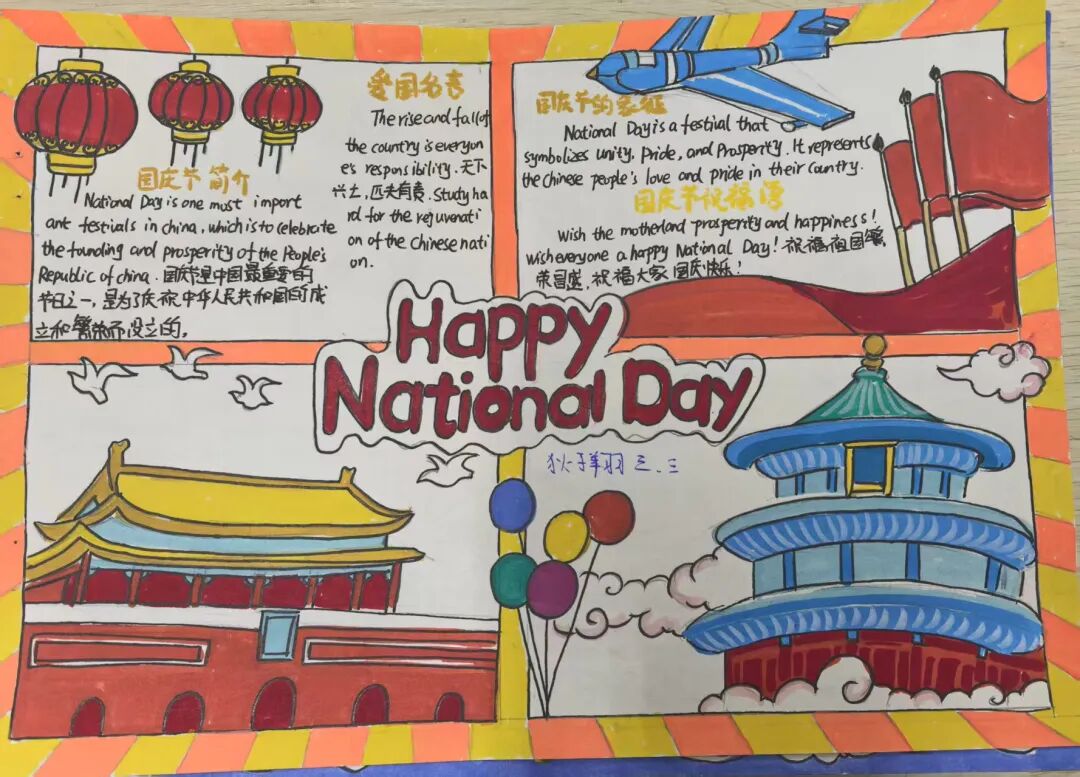 爱国名言
The rise and fall of
the country is everyon
e's responsibility. 天下
兴亡,匹夫有责. Study ha
rd for the rejuvenati
on of the Chinese nati
on.
国庆节简介
National Day is one most import
ant festivals in china, which is to celebrate
the founding and prosperity of the People's
Republic of china. 国庆节是中国最重要的
节日之一,是为了庆祝中华人民共和国的成
立和繁荣而设立的。
国庆节的象征
National Day is a festival that
symbolizes unity, Pride, and Prosperity. It represents
the Chinese people's love and pride in their country.
国庆节祝福语
Wish the motherland prosperity and happiness!
wish everyone a happy National Day! 祝福祖国繁
荣昌盛,祝福大家国庆快乐!
Happy
National Day
三.三